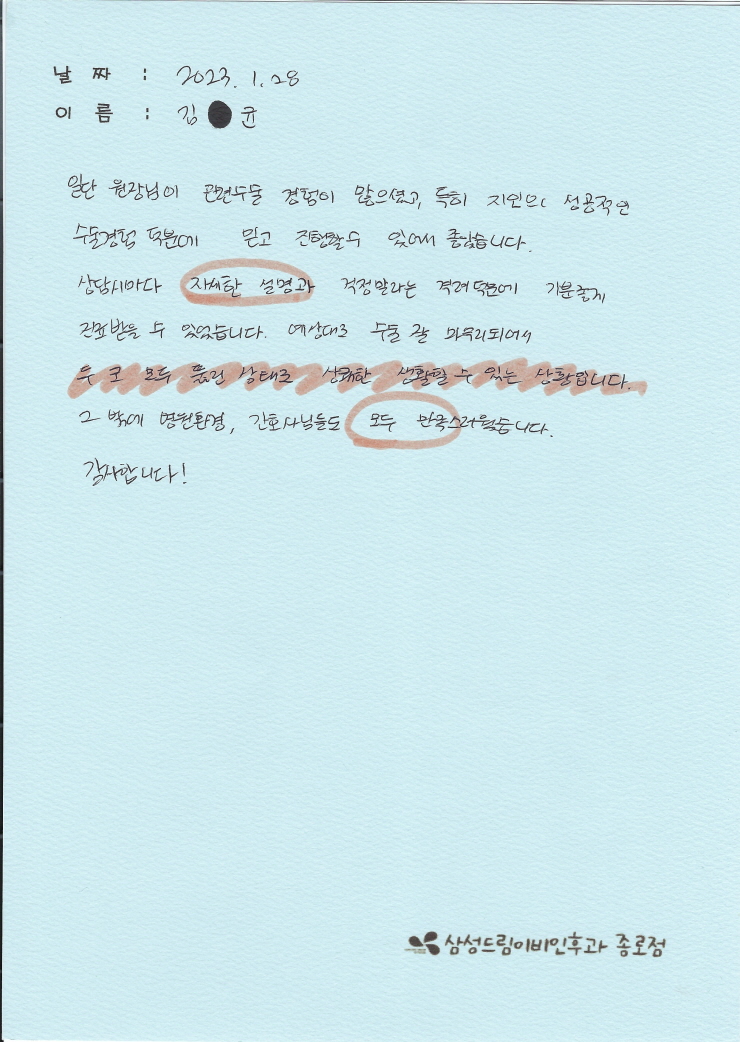 날 짜 : 2023. 1. 28
이 름 : 김 균
일단 원장님이 관련수술 경험이 많으셨고, 특히 지인의 성공적인
수술경험 덕분에 믿고 진행할수 있어서 좋았습니다.
상담시마다 자세한 설명과 걱정말라는 격려 덕분에 기분좋게
진료받을 수 있었습니다. 예상대로 수술 잘 마무리되어서
두 코 모두 뚫린 상태로 상쾌한 생활할 수 있는 상황입니다.
그 밖에 병원환경, 간호사님들도 모두 만족스러웠습니다.
감사합니다!
삼성드림이비인후과 종로점